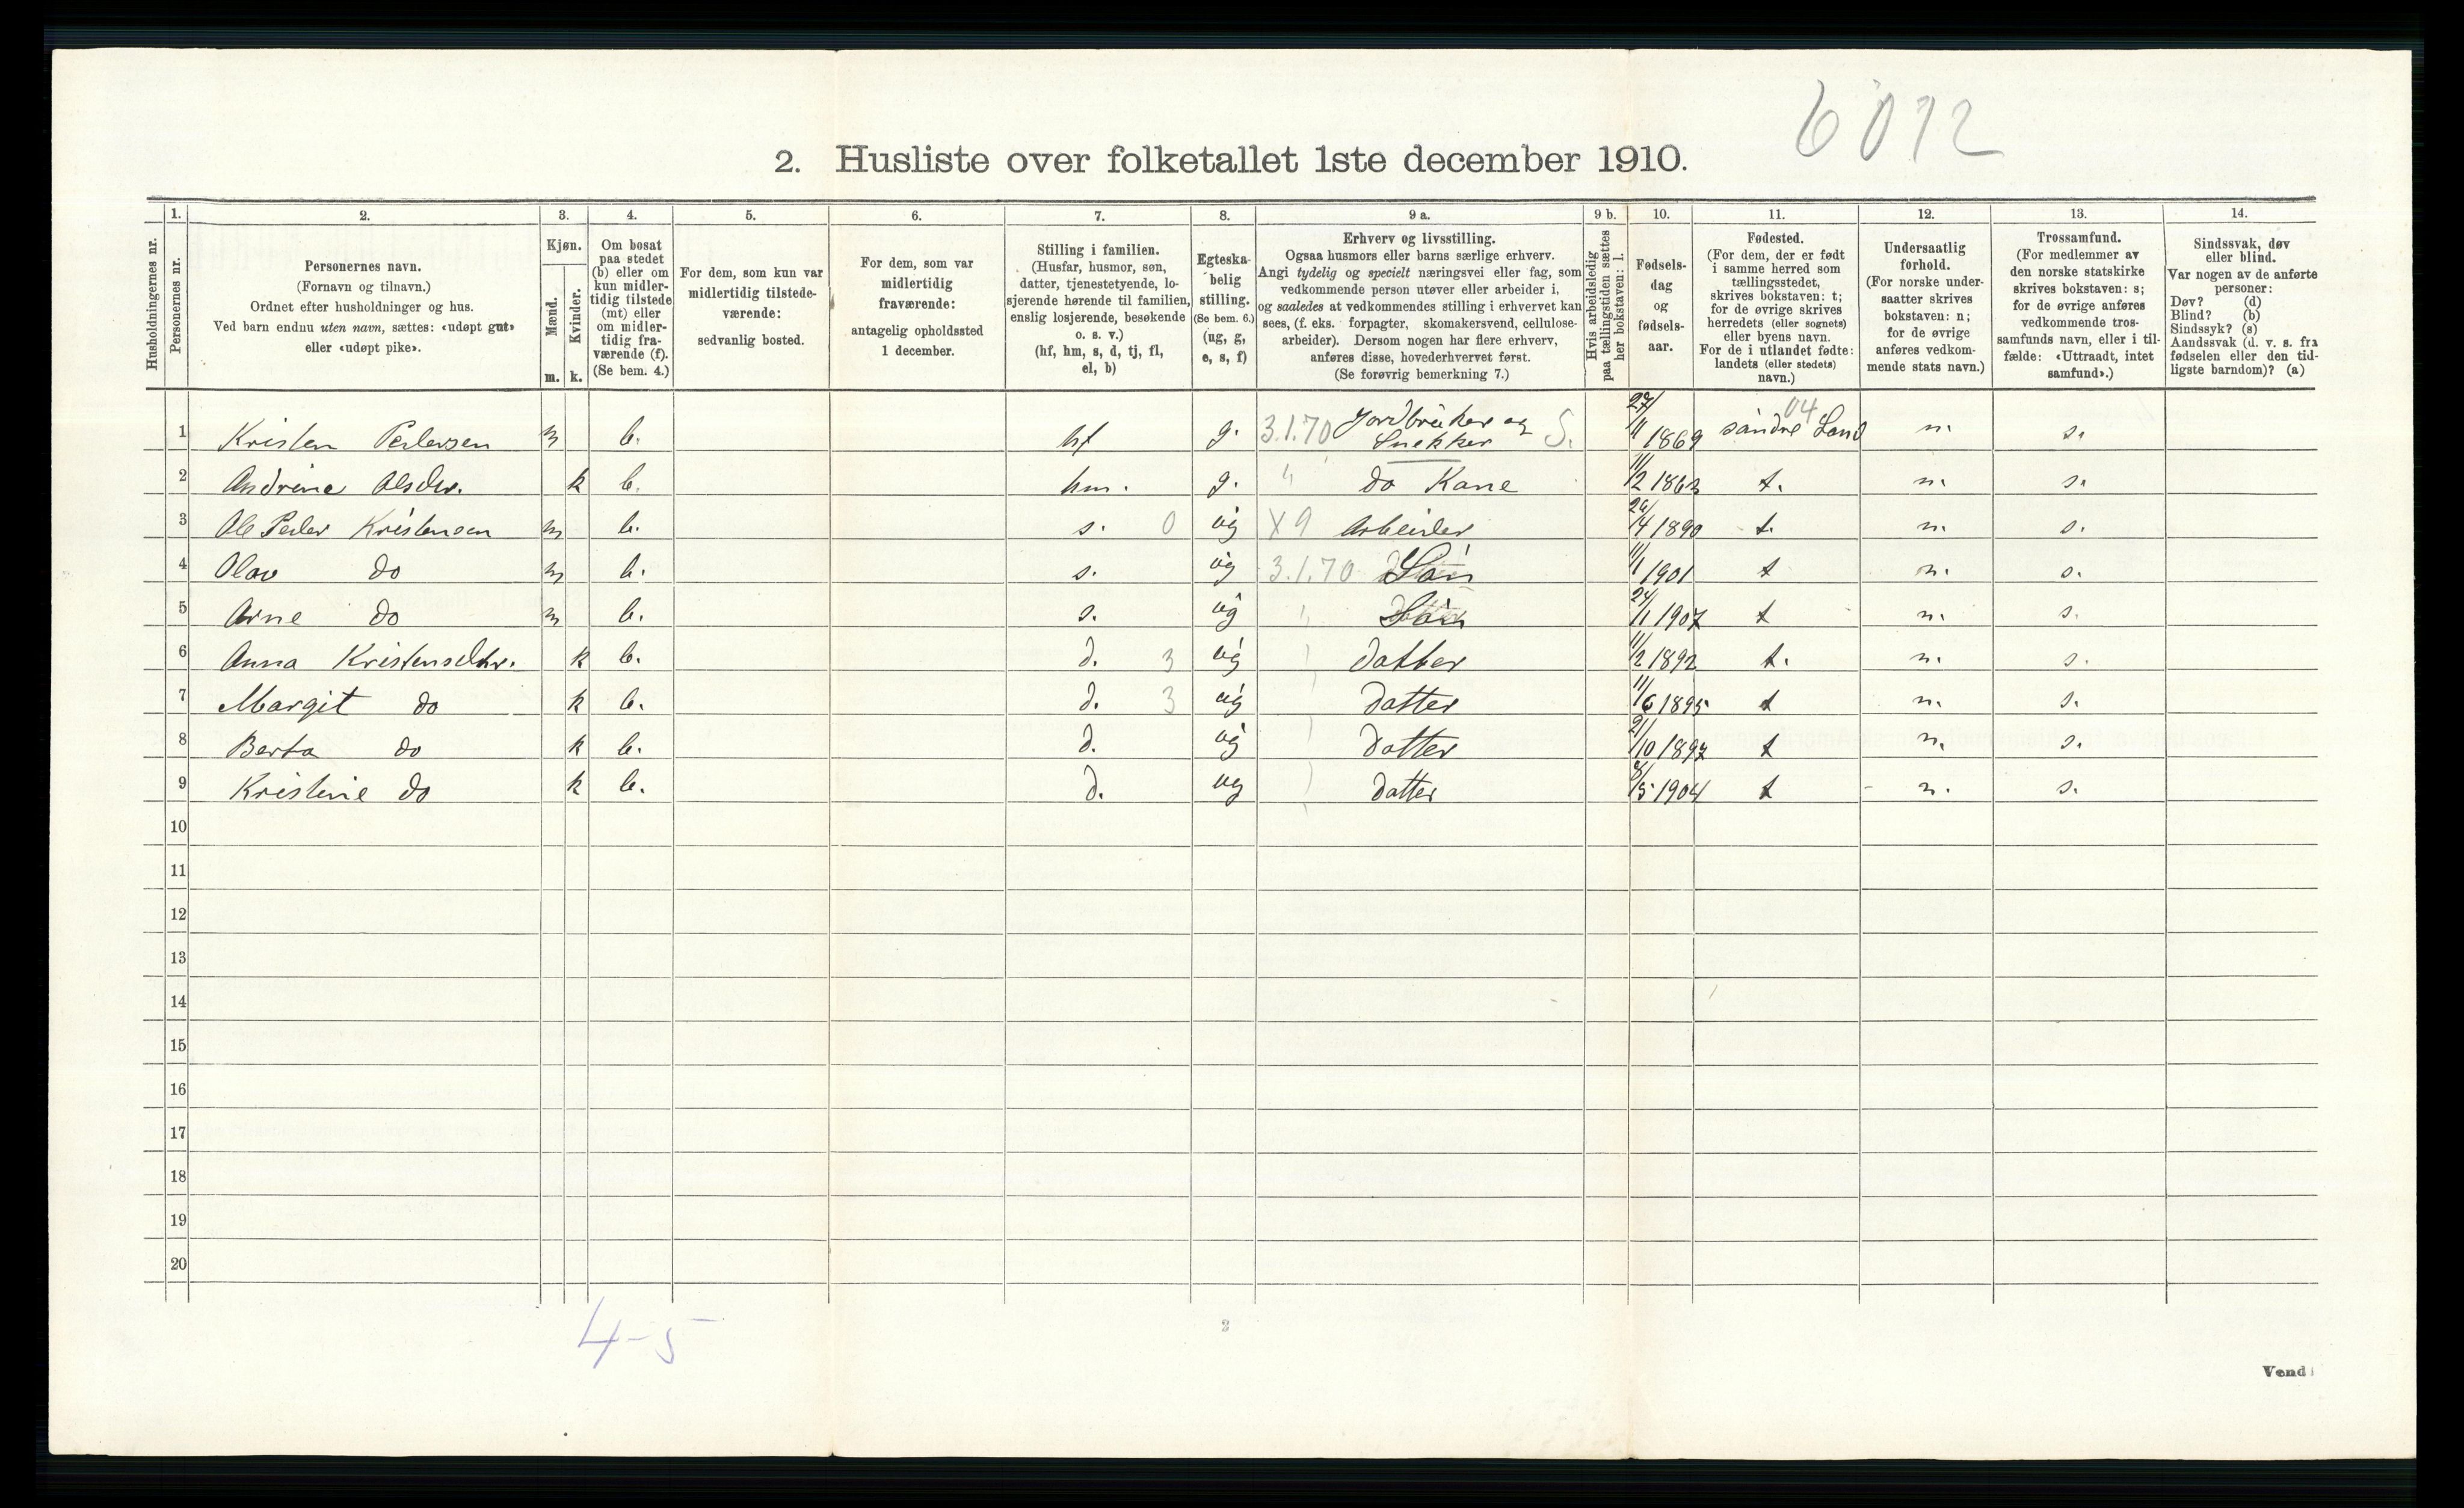 6012
2. Husliste over folketallet 1ste december 1910.
Husholdningernes nr.
1.
Personernes nr.
2.
Personernes navn.
(Fornavn og tilnavn.)
Ordnet efter husholdninger og hus.
Ved barn endnu uten navn, sættes: «udøpt gut»
eller «udøpt pike».
3.
Kjøn.
Mænd.
Kvinder.
m. k.
4.
Om bosat
paa stedet
(b) eller om
kun midler-
tidig tilstede
(mt) eller
om midler-
tidig fra-
værende (f).
(Se bem. 4.)
5.
For dem, som kun var
midlertidig tilstede-
værende:
sedvanlig bosted.
6.
For dem, som var
midlertidig
fraværende:
antagelig opholdssted
1 december.
7.
Stilling i familien.
(Husfar, husmor, søn,
datter, tjenestetyende, lo-
sjerende hørende til familien,
enslig losjerende, besøkende
o. s. v.)
(hf, hm, s, d, tj, fl,
el, b)
8.
Egteska-
belig
stilling.
(Se bem. 6.)
(ug, g,
e, s, f)
9 a.
Erhverv og livsstilling.
Ogsaa husmors eller barns særlige erhverv.
Angi tydelig og specielt næringsvei eller fag, som
vedkommende person utøver eller arbeider i,
og saaledes at vedkommendes stilling i erhvervet kan
sees, (f. eks. forpagter, skomakersvend, cellulose-
arbeider). Dersom nogen har flere erhverv,
anføres disse, hovederhvervet først.
(Se forøvrig bemerkning 7.)
9 b.
Hvis arbeidsledig
paa tællingstiden sættes
her bokstaven: l.
10.
Fødsels-
dag
og
fødsels-
aar.
11.
Fødested.
(For dem, der er født
i samme herred som
tællingsstedet,
skrives bokstaven: t;
for de øvrige skrives
herredets (eller sognets)
eller byens navn.
For de i utlandet fødte:
landets (eller stedets)
navn.)
12.
Undersaatlig
forhold.
(For norske under-
saatter skrives
bokstaven: n;
for de øvrige
anføres vedkom-
mende stats navn.)
13.
Trossamfund.
(For medlemmer av
den norske statskirke
skrives bokstaven: s;
for de øvrige anføres
vedkommende tros-
samfunds navn, eller i til-
fælde: «Uttraadt, intet
samfund».)
14.
Sindssvak, døv
eller blind.
Var nogen av de anførte
personer:
Døv? (d)
Blind? (b)
Sindssyk? (s)
Aandssvak (d. v. s. fra
fødselen eller den tid-
ligste barndom)? (a)
1 Kristen Pedersen m b. hf g. 3.1.70 Jordbruker og Snekker S. 27/11 1869 söndre Land 04 n. s.
2 Andrine Olsdtr. k b. hm. g. " do Kone 11/2 1863 t. n. s.
3 Ole Peder Kristensen m b. s. 0 ug X9 Arbeider 26/4 1890 t. n. s.
4 Olav do m b. s. ug 3.1.70 Sön 11/1 1901 t n. s.
5 Arne do m b. s. ug " Sön 24/11 1907 t n. s.
6 Anna Kristensdtr. k b. d. 3 ug " Datter 11/2 1892 t. n. s.
7 Margit do k b. d. 3 ug " Datter 11/6 1895 t n. s.
8 Berta do k b. d. ug " Datter 21/10 1897 t n. s.
9 Kristine do k b. d. ug " Datter 8/5 1904 t n. s.
10
11
12
13
14
15
16
17
18
19
20
4-5
2
Vend